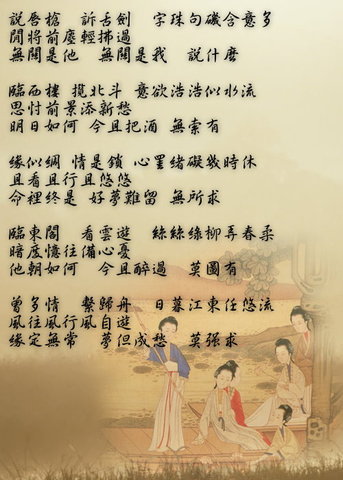 説唇槍 訴舌劍 字珠句磯含意多
閒將前塵輕拂過
無關是他 無關是我 說什麼
臨西樓 攬北斗 意欲浩浩似水流
思忖前景添新愁
明日如何 今且把酒 無索有
緣似綢 情是鎖 心罣緒礙幾時休
且看且行且悠悠
命裡終是 好夢難留 無所求
臨東閣 看雲遊 絲絲綠柳弄春柔
暗度憶往備心憂
他朝如何 今且醉過 莫圖有
曾多情 繫歸舟 日暮江東任悠流
風往風行風自遊
緣定無常 夢但成愁 莫强求